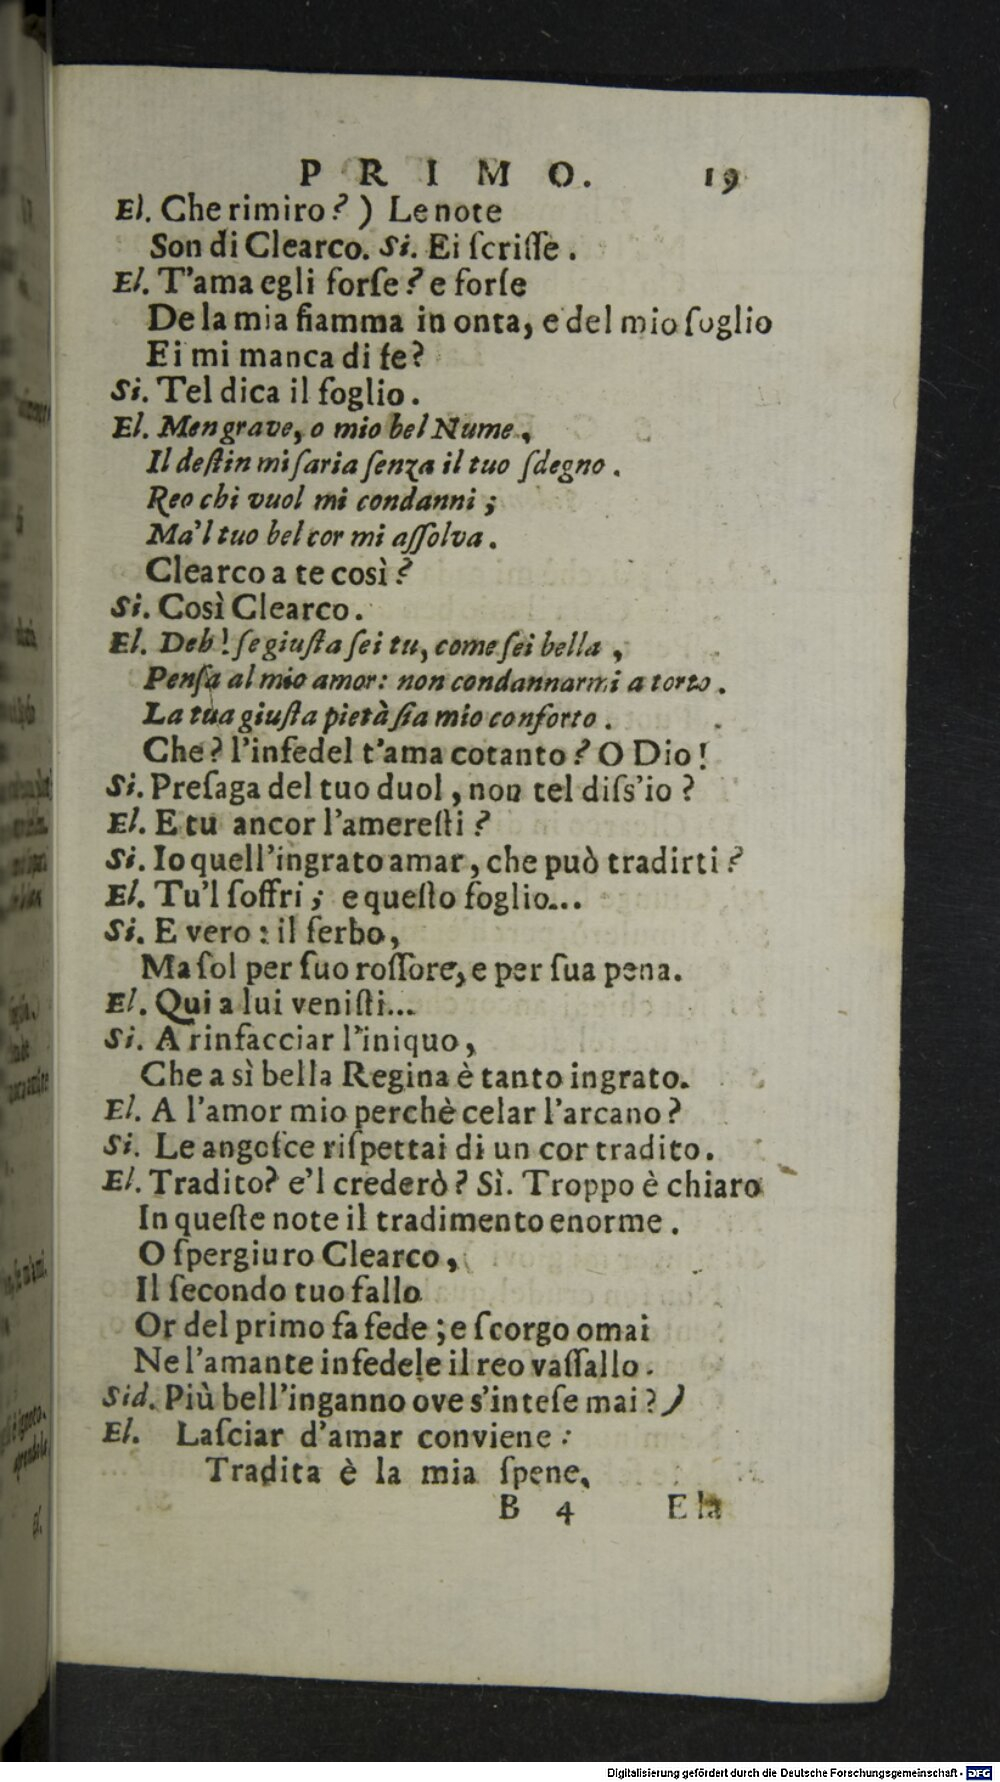 PRIMO. 19
El. Che rimiro? ) Le note
Son di Clearco. Si. Ei ſcriſſe.
El. T'ama egli forſe? e forſe
De la mia fiamma in onta, e del mio ſoglio
Ei mi manca di fe?
Si. Tel dica il foglio.
El. Men grave, o mio bel Nume,
Il deſtin mi ſaria ſenza il tuo ſdegno.
Reo chi vuol mi condanni;
Ma'l tuo bel cor mi aſſolva.
Clearco a te così?
Si. Così Clearco.
El. Deh! ſe giuſta ſei tu, come ſei bella,
Penſa al mio amor: non condannarmi a torto.
La tua giuſta pietà ſia mio conforto.
Che? l'infedel t'ama cotanto? O Dio!
Si. Preſaga del tuo duol, non tel diſs'io?
El. E tu ancor l'amereſti?
Si. Io quell'ingrato amar, che può tradirti?
El. Tu'l ſoffri; e queſto foglio...
Si. E vero: il ſerbo,
Ma ſol per ſuo roſſore, e per ſua pena.
El. Qui a lui veniſti...
Si. A rinfacciar l'iniquo,
Che a sì bella Regina è tanto ingrato.
El. A l'amor mio perchè celar l'arcano?
Si. Le angoſce riſpettai di un cor tradito.
El. Tradito? e'l crederò? Sì. Troppo è chiaro
In queſte note il tradimento enorme.
O ſpergiuro Clearco,
Il ſecondo tuo fallo
Or del primo fa fede; e ſcorgo omai
Ne l'amante infedele il reo vaſſallo.
Sid. Più bell'inganno ove s'inteſe mai?)
El. Laſciar d'amar conviene:
Tradita è la mia ſpene,
B 4 E la
Digitalisierung gefördert durch die Deutsche Forschungsgemeinschaft - DFG